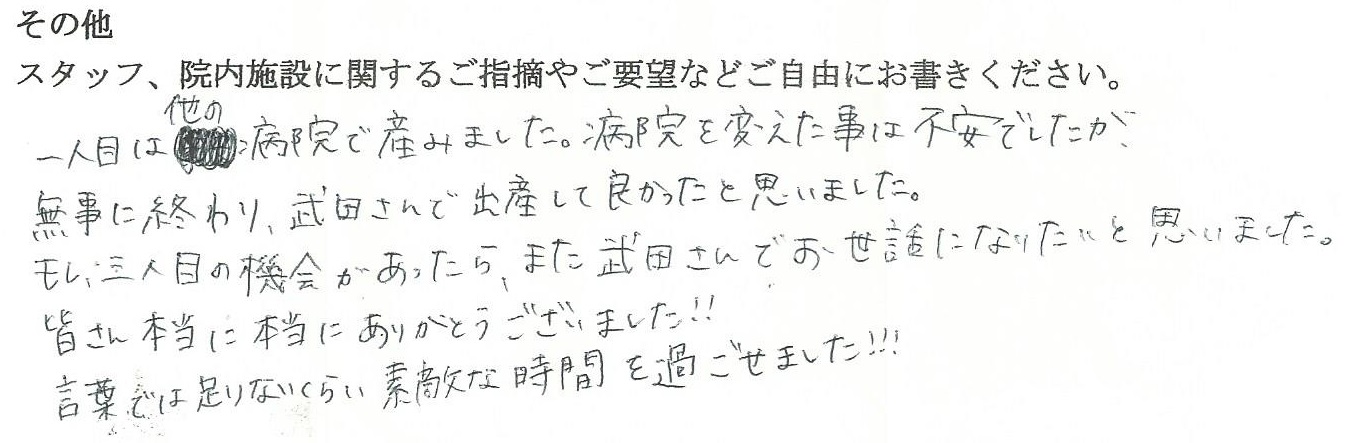 その他
スタッフ、院内施設に関するご指摘やご要望などご自由にお書きください。
一人目は他の病院で産みました。病院を変えた事は不安でしたが、
無事に終わり、武田さんで出産して良かったと思いました。
もし、三人目の機会があったら、また武田さんでお世話になりたいと思いました。
皆さん本当に本当にありがとうございました!!
言葉では足りないくらい素敵な時間を過ごせました!!!